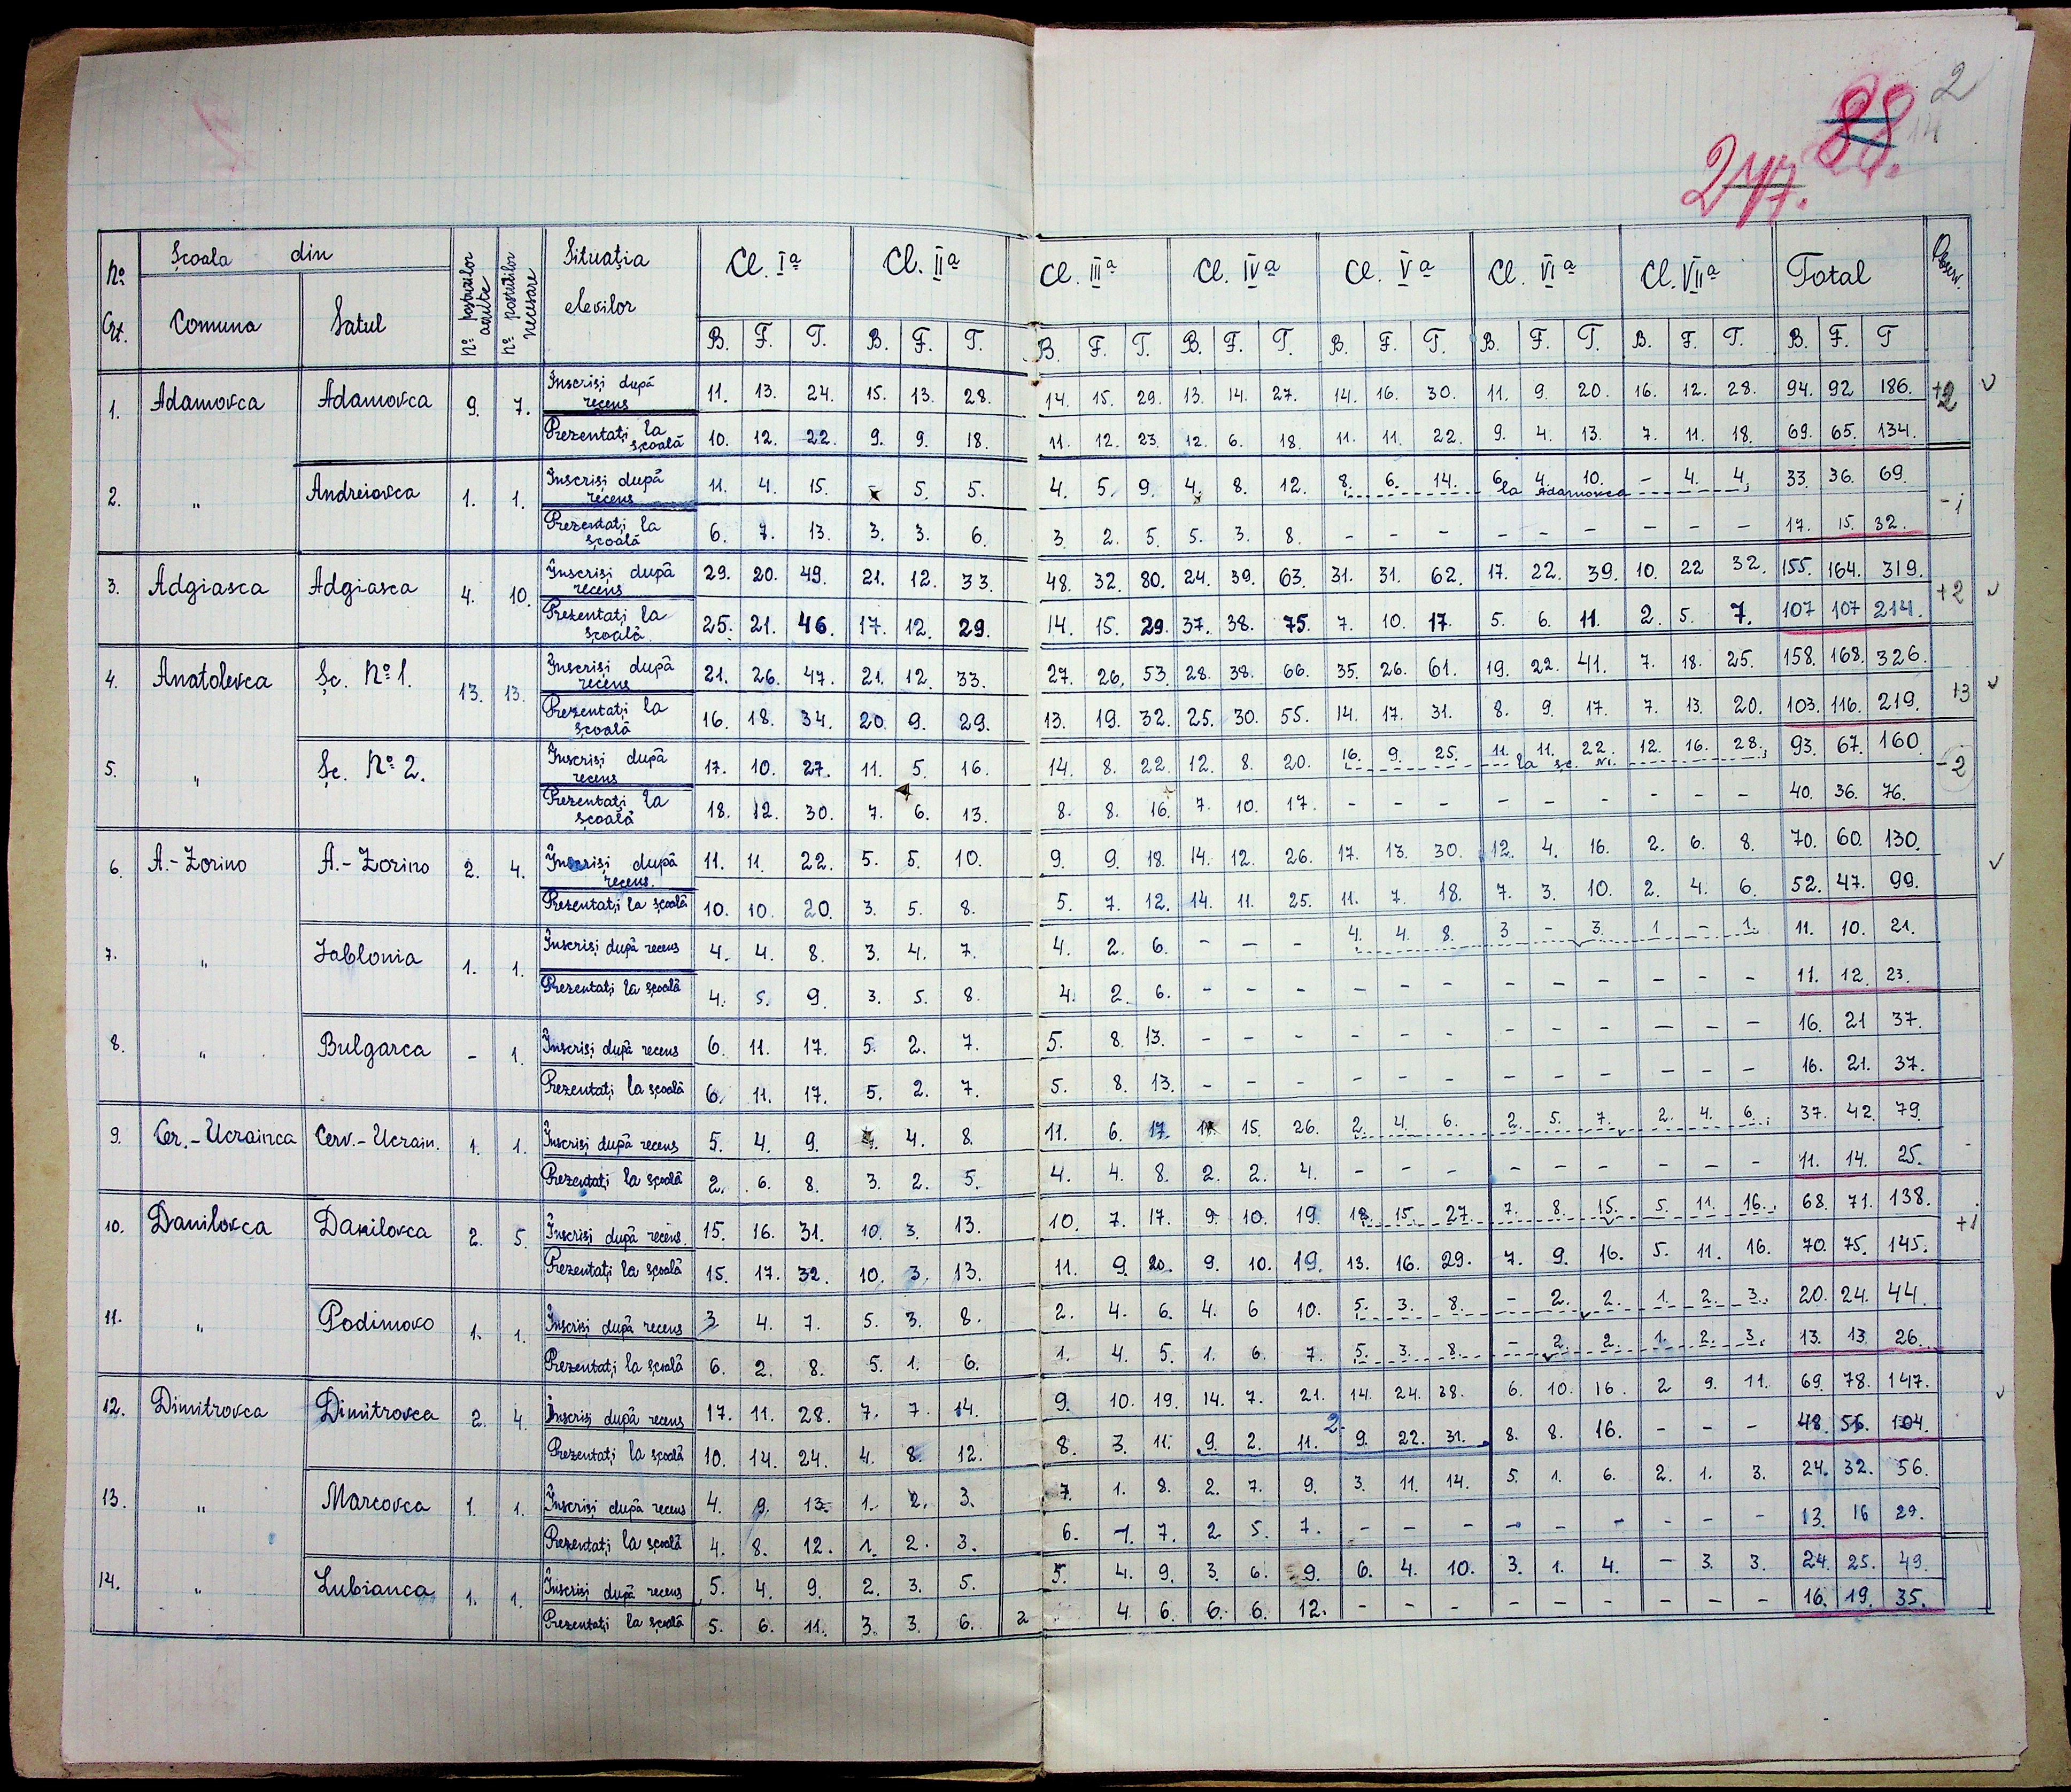 2
88. 14
247.
No. Crt. Școala din Comuna Satul No. posturilor avute No. posturilor necesare Situația elevilor Cl. Iª Cl. IIª Cl. IIIª Cl. IVª Cl. Vª Cl. VIª Cl. VIIª Total Observ.
B. F. T. B. F. T. B. F. T. B. F. T. B. F. T. B. F. T. B. F. T. B. F. T
1. Adamovca Adamovca 9. 7. Înscriși după recens 11. 13. 24. 15. 13. 28. 14. 15. 29. 13. 14. 27. 14. 16. 30. 11. 9. 20. 16. 12. 28. 94. 92 186. +2 v
Prezentați la școală 10. 12. 22. 9. 9. 18. 11. 12. 23. 12. 6. 18. 11. 11. 22. 9. 4. 13. 7. 11. 18. 69. 65. 134.
2. " Andreiovca 1. 1. Înscriși după recens 11. 4. 15. - 5. 5. 4. 5. 9. 4. 8. 12. 8. 6. 14. 6. 4. 10. - 4. 4. 33. 36. 69. -1
la Adamovca
Prezentați la școală 6. 7. 13. 3. 3. 6. 3. 2. 5. 5. 3. 8. - - - - - - - - - 17. 15. 32.
3. Adgiasca Adgiasca 4. 10. Înscriși după recens 29. 20. 49. 21. 12. 33. 48. 32. 80. 24. 39. 63. 31. 31. 62. 17. 22. 39. 10. 22 32. 155. 164. 319. +2 v
Prezentați la școală 25. 21. 46. 17. 12. 29. 14. 15. 29. 37. 38. 75. 7. 10. 17. 5. 6. 11. 2. 5. 7. 107 107 214.
4. Anatolevca Șc. No. 1. 13. 13. Înscriși după recens 21. 26. 47. 21. 12. 33. 27. 26. 53. 28. 38. 66. 35. 26. 61. 19. 22. 41. 7. 18. 25. 158. 168. 326. +3 v
Prezentați la școală 16. 18. 34. 20. 9. 29. 13. 19. 32. 25. 30. 55. 14. 17. 31. 8. 9. 17. 7. 13. 20. 103. 116. 219.
5. " Șc. No. 2. Înscriși după recens 17. 10. 27. 11. 5. 16. 14. 8. 22. 12. 8. 20. 16. 9. 25. 11. 11. 22. 12. 16. 28. 93. 67. 160. -2
la șc. N1.
Prezentați la școală 18. 12. 30. 7. 6. 13. 8. 8. 16. 7. 10. 17. - - - - - - - - - 40. 36. 76.
6. A.-Zorino A.-Zorino 2. 4. Înscriși după recens. 11. 11. 22. 5. 5. 10. 9. 9. 18. 14. 12. 26. 17. 13. 30. 12. 4. 16. 2. 6. 8. 70. 60. 130. v
Prezentați la școală 10. 10. 20. 3. 5. 8. 5. 7. 12. 14. 11. 25. 11. 7. 18. 7. 3. 10. 2. 4. 6. 52. 47. 99.
7. " Iablonia 1. 1. Înscriși după recens 4. 4. 8. 3. 4. 7. 4. 2. 6. - - - 4. 4. 8. 3 - 3. 1 - 1. 11. 10. 21.
Prezentați la școală 4. 5. 9. 3. 5. 8. 4. 2. 6. - - - - - - - - - - - - 11. 12. 23.
8. " Bulgarca - 1. Înscriși după recens 6. 11. 17. 5. 2. 7. 5. 8. 13. - - - - - - - - - - - - 16. 21 37.
Prezentați la școală 6. 11. 17. 5. 2. 7. 5. 8. 13. - - - - - - - - - - - - 16. 21. 37.
9. Cer.-Ucrainca Cerv.-Ucrain. 1. 1. Înscriși după recens 5. 4. 9. 4. 4. 8. 11. 6. 17. 11. 15. 26. 2. 4. 6. 2. 5. 7. 2. 4. 6. 37. 42. 79. -
Prezentați la școală 2. 6. 8. 3. 2. 5. 4. 4. 8. 2. 2. 4. - - - - - - - - - 11. 14. 25.
10. Danilovca Danilovca 2. 5. Înscriși după recens. 15. 16. 31. 10. 3. 13. 10. 7. 17. 9. 10. 19. 12. 15. 27. 7. 8. 15. 5. 11. 16. 68. 71. 138. +1
Prezentați la școală 15. 17. 32. 10. 3. 13. 11. 9. 20. 9. 10. 19. 13. 16. 29. 7. 9. 16. 5. 11. 16. 70. 75. 145.
11. " Podimovo 1. 1. Înscriși după recens 3. 4. 7. 5. 3. 8. 2. 4. 6. 4. 6 10. 5. 3. 8. - 2. 2. 1. 2. 3. 20. 24. 44.
Prezentați la școală 6. 2. 8. 5. 1. 6. 1. 4. 5. 1. 6. 7. 5. 3. 8. - 2. 2. 1. 2. 3. 13. 13. 26.
12. Dimitrovca Dimitrovca 2. 4. Înscriși după recens 17. 11. 28. 7. 7. 14. 9. 10. 19. 14. 7. 21. 14. 24. 38. 6. 10. 16. 2 9. 11. 69. 78. 147. v
Prezentați la școală 10. 14. 24. 4. 8. 12. 8. 3. 11. 9. 2. 11. 2. 9. 22. 31. 8. 8. 16. - - - 48. 56. 104.
13. " Marcovca 1. 1. Înscriși după recens 4. 9. 13. 1. 2. 3. 7. 1. 8. 2. 7. 9. 3. 11. 14. 5. 1. 6. 2. 1. 3. 24. 32. 56.
Prezentați la școală 4. 8. 12. 1. 2. 3. 6. 1. 7. 2. 5. 7. - - - - - - - - - 13. 16 29.
14. " Lubianca 1. 1. Înscriși după recens 5. 4. 9. 2. 3. 5. 5. 4. 9. 3. 6. 9. 6. 4. 10. 3. 1. 4. - 3. 3. 24. 25. 49.
Prezentați la școală 5. 6. 11. 3. 3. 6. 2 4. 6. 6. 6. 12. - - - - - - - - - 16. 19. 35.